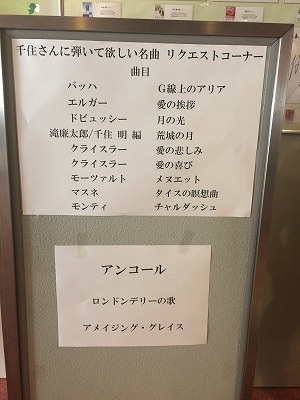 千住さんに弾いて欲しい名曲 リクエストコーナー
曲目
バッハ G線上のアリア
エルガー 愛の挨拶
ドビュッシー 月の光
滝廉太郎/千住 明 編 荒城の月
クライスラー 愛の悲しみ
クライスラー 愛の喜び
モーツァルト メヌエット
マスネ タイスの瞑想曲
モンティ チャルダッシュ
アンコール
ロンドンデリーの歌
アメイジング・グレイス